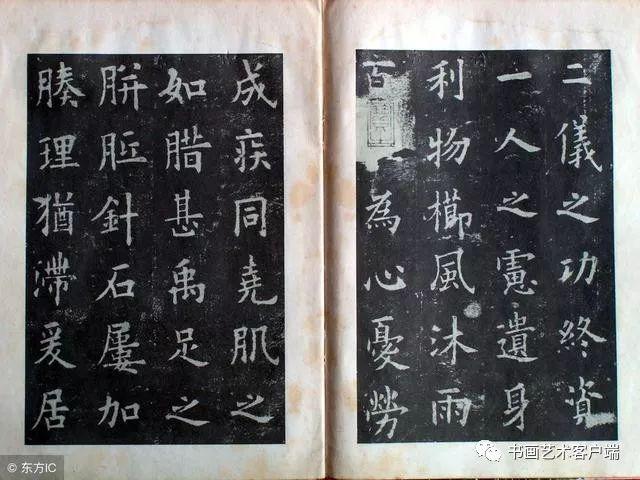 二儀之功終資
一人之慮遺身
利物櫛風沐雨
百 為心憂勞
成疾同堯肌之
如腊甚禹足之
胼胝針石屢加
腠理猶滯爰居
书画艺术客户端
© 东方IC